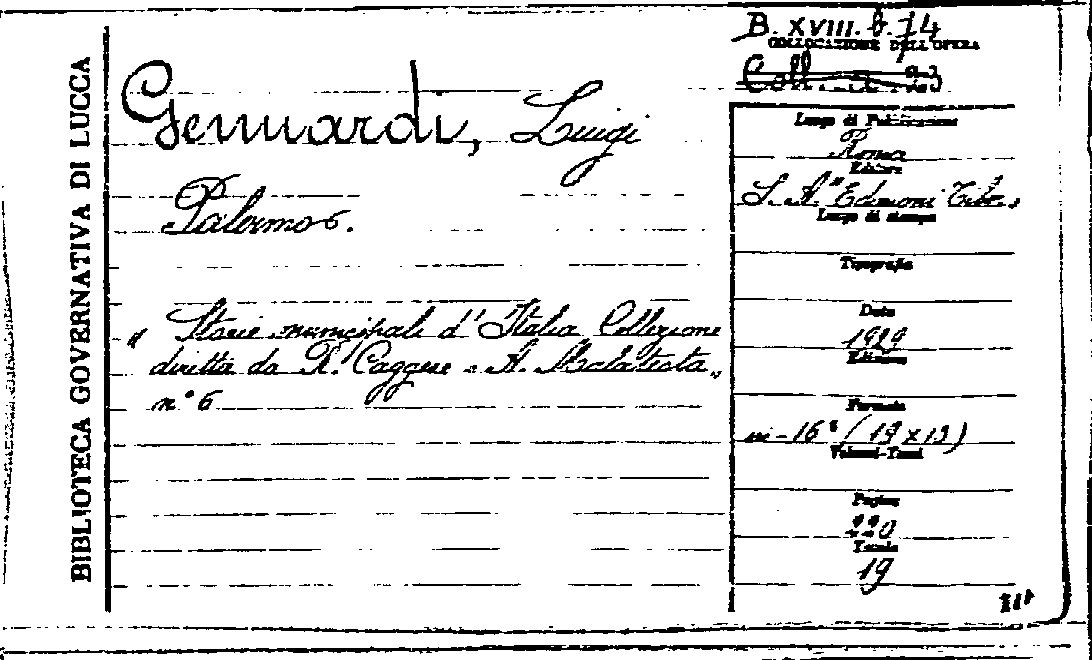 BIBLIOTECA GOVERNATIVA DI LUCCA
B. XVIII. b. 74
COLLOCAZIONE DELL'OPERA
Coll.
Gennardi, Luigi
Palermo.
" Storie municipali d'Italia Collezione
diretta da R. Caggese e A. Malatesta "
n.° 6
Luogo di Pubblicazione
Roma
Editore
S. A. "Edizioni Tibe.
Luogo di stampa
Tipografia
Data
1929
Edizione
Formato
in-16° (19 x 13)
Volumi-Tomi
Pagine
220
Tavole
19